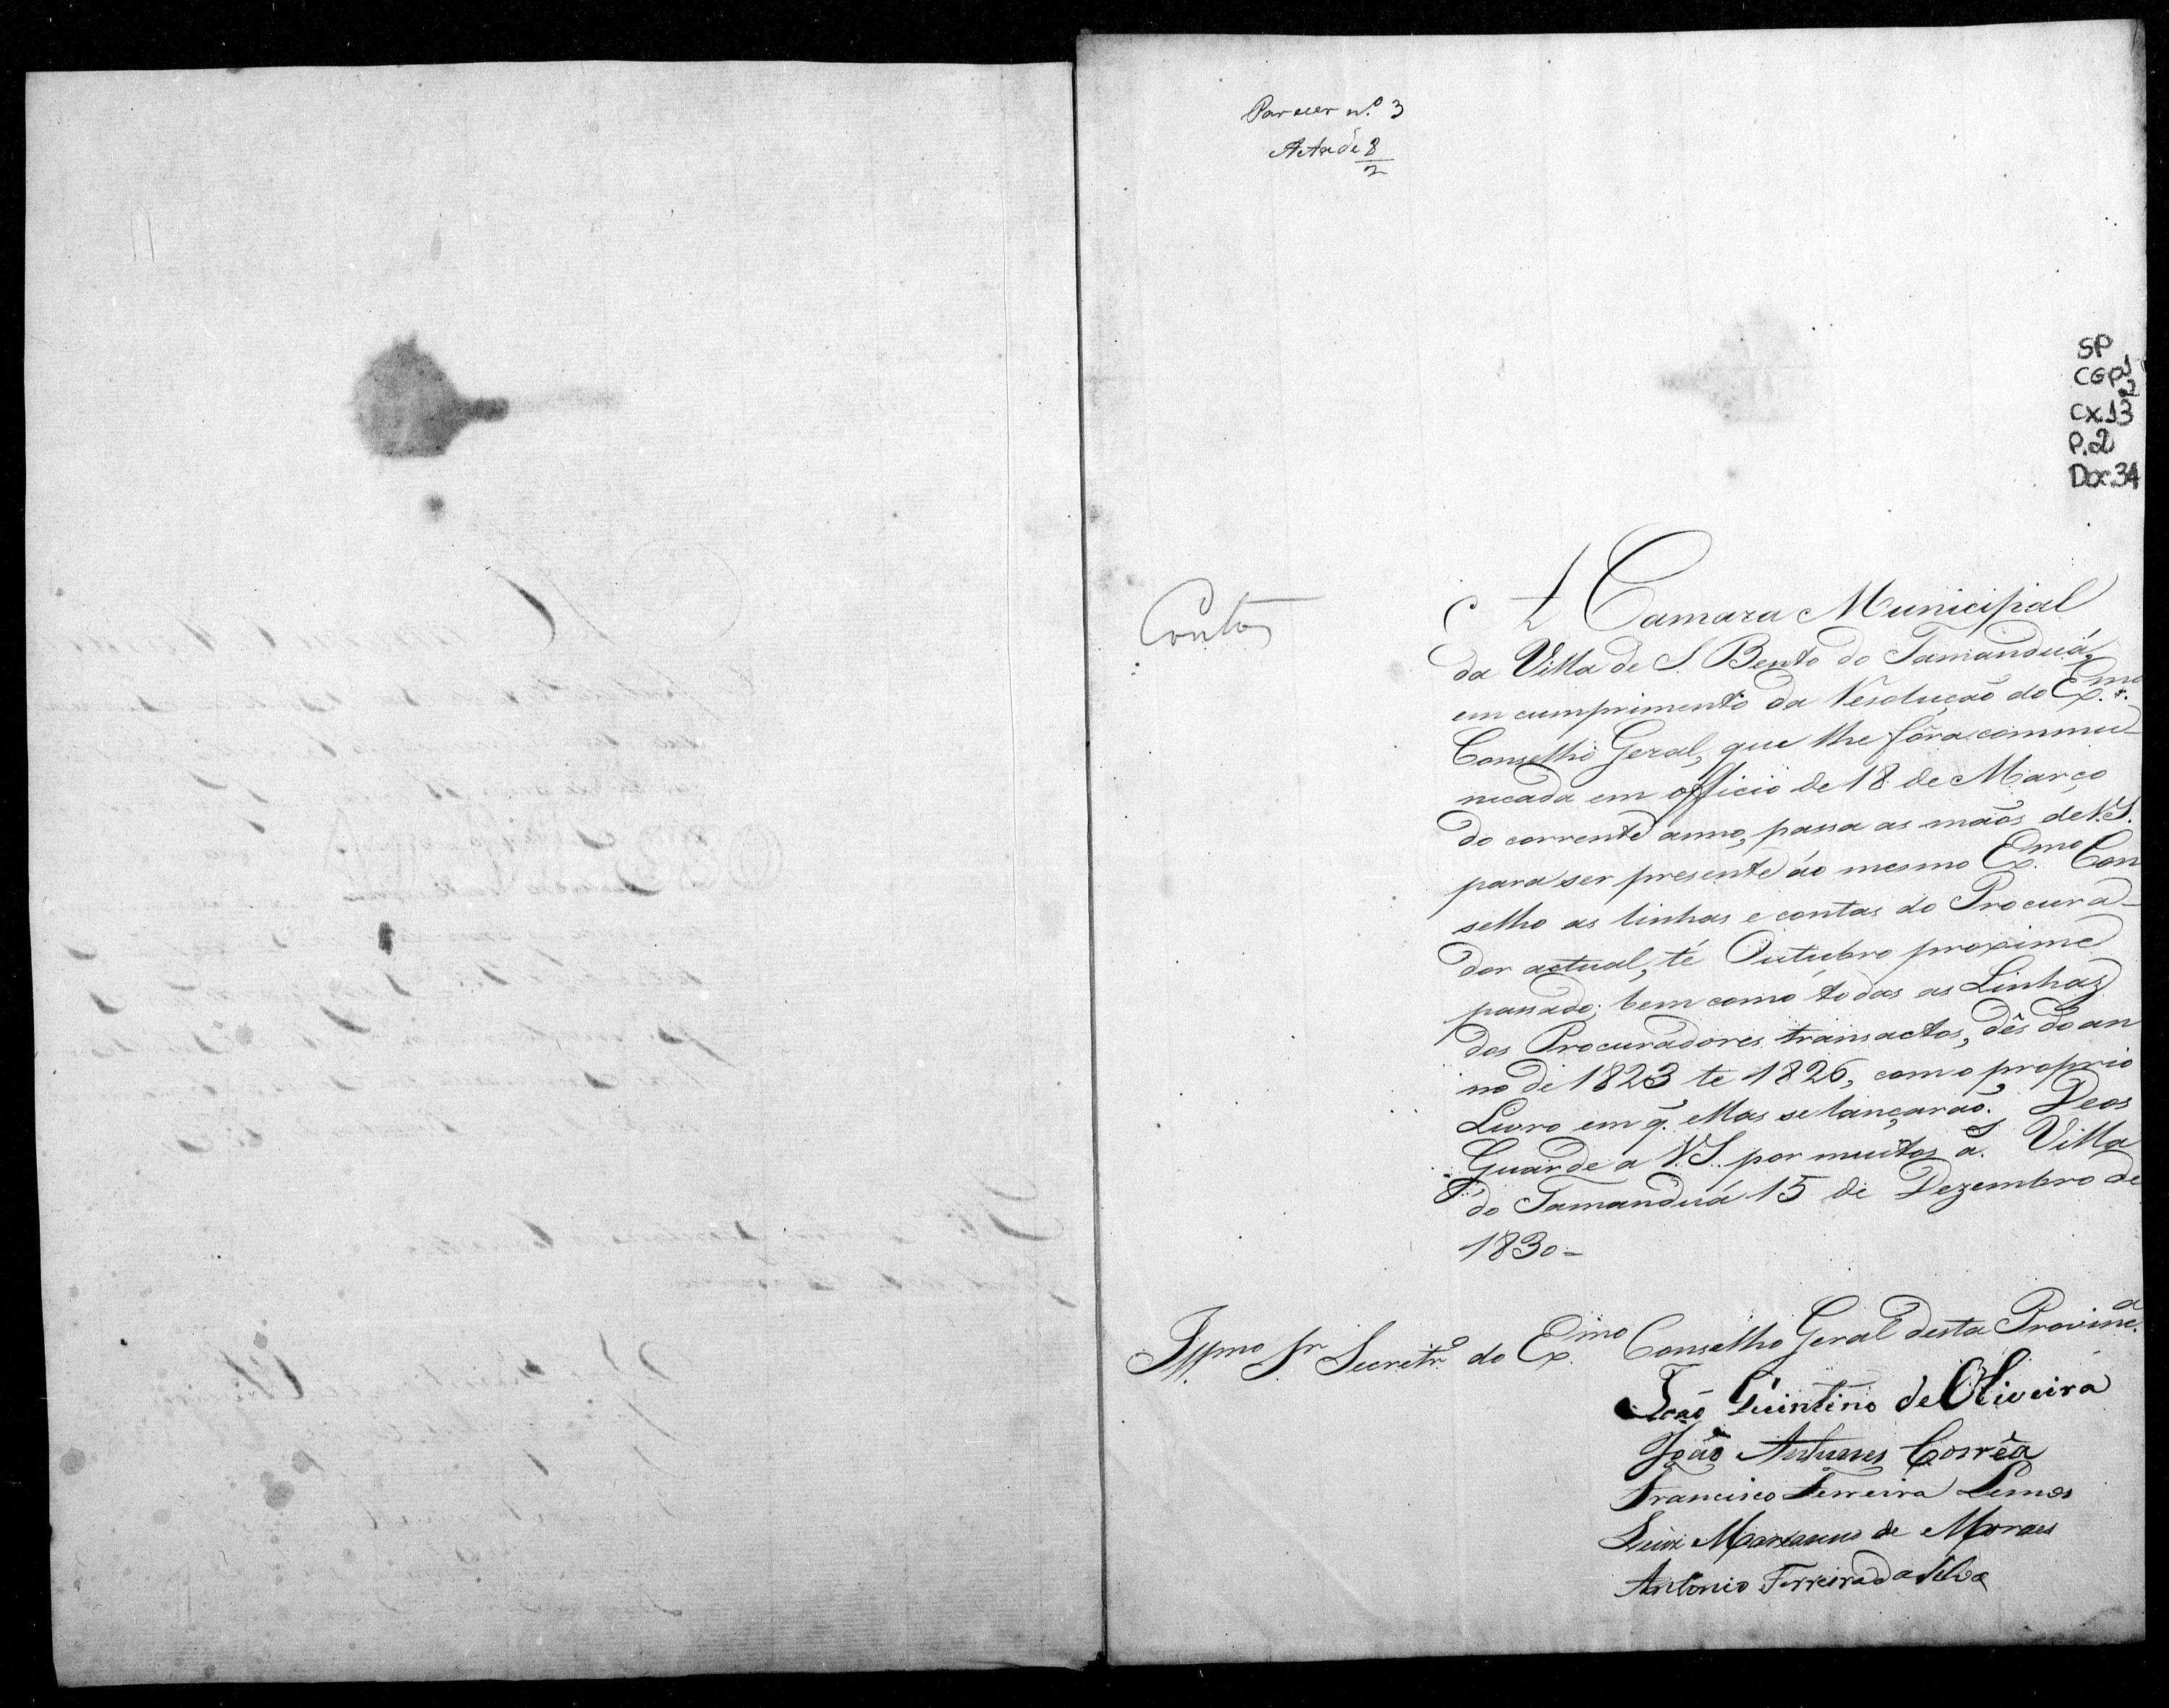 Parecer n.º 3
Acta de 8/2
SP
CGP1
2
Cx.13
P.2
Doc.34
Contas
A Camara Municipal
da Villa de S. Bento do Tamanduá,
em cumprimento da Resolução do Ex.mo
Conselho Geral, que lhe fôra commu-
nicada em officio de 18 de Março
do corrente anno, passa as mãos de V.S.
para ser presente áo mesmo Ex.mo Con
selho as linhas e contas do Procura-
dor actual, té Outubro proximo
passado; bem como todas as Linhas
dos Procuradores transactos, dês do an
no de 1823 te 1826, com o proprio
Livro em q. ellas se lançarão. Deos
Guarde a V.S. por muitos a.s Villa
do Tamanduá 15 de Dezembro de
1830 -
Illmo Sr. Secretr.o do Ex.mo Conselho Geral desta Provinc.a
João Quintino de Oliveira
João Antunes Corrêa
Francisco Ferreira Lemos
Luiz de Moraes
Antonio Ferreira da Silva